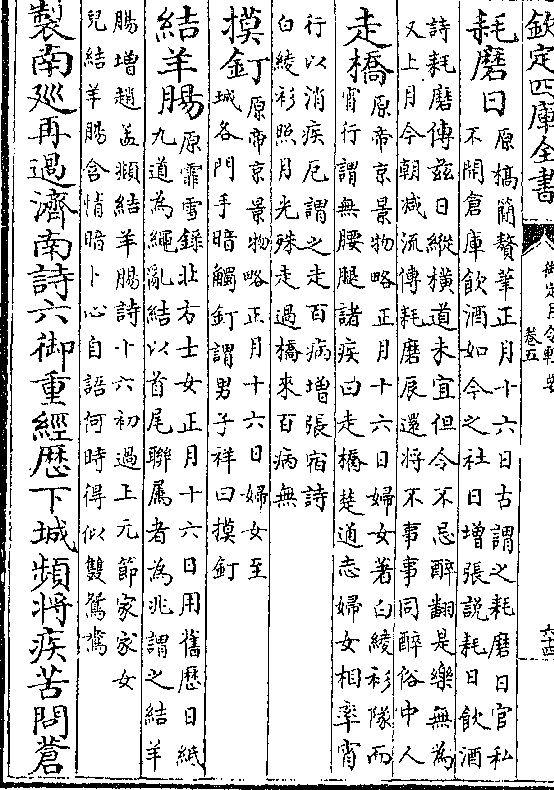 欽定四庫全書
御定月令輯要
卷五
耗磨日
原槁簡贅筆正月十六日古謂之耗磨日官私
不開倉庫飲酒如今之社日增張説耗日飲酒
詩耗磨傳兹日縱横道未宜但令不忌醉翻是樂無為
又上月今朝減流傳耗磨辰還將不事事同醉俗中人
走橋
原帝京景物略正月十六日婦女著白綾衫隊而
宵行謂無腰腿諸疾曰走橋楚通志婦女相率宵
行以消疾厄謂之走百病增張宿詩
白綾衫照月光殊走過橋來百病無
摸釘
原帝京景物略正月十六日婦女至
城各門手暗觸釘謂男子祥曰摸釘
結羊腸
原霏雪錄北方士女正月十六日用舊歴日紙
九道為繩亂結以首尾聯屬者為兆謂之結羊
腸增趙孟頫結羊腸詩十六初過上元節家家女
兒結羊腸含情暗卜心自語何時得似雙鴛鴦
製南廵再過濟南詩六御重經歴下城頻將疾苦問蒼